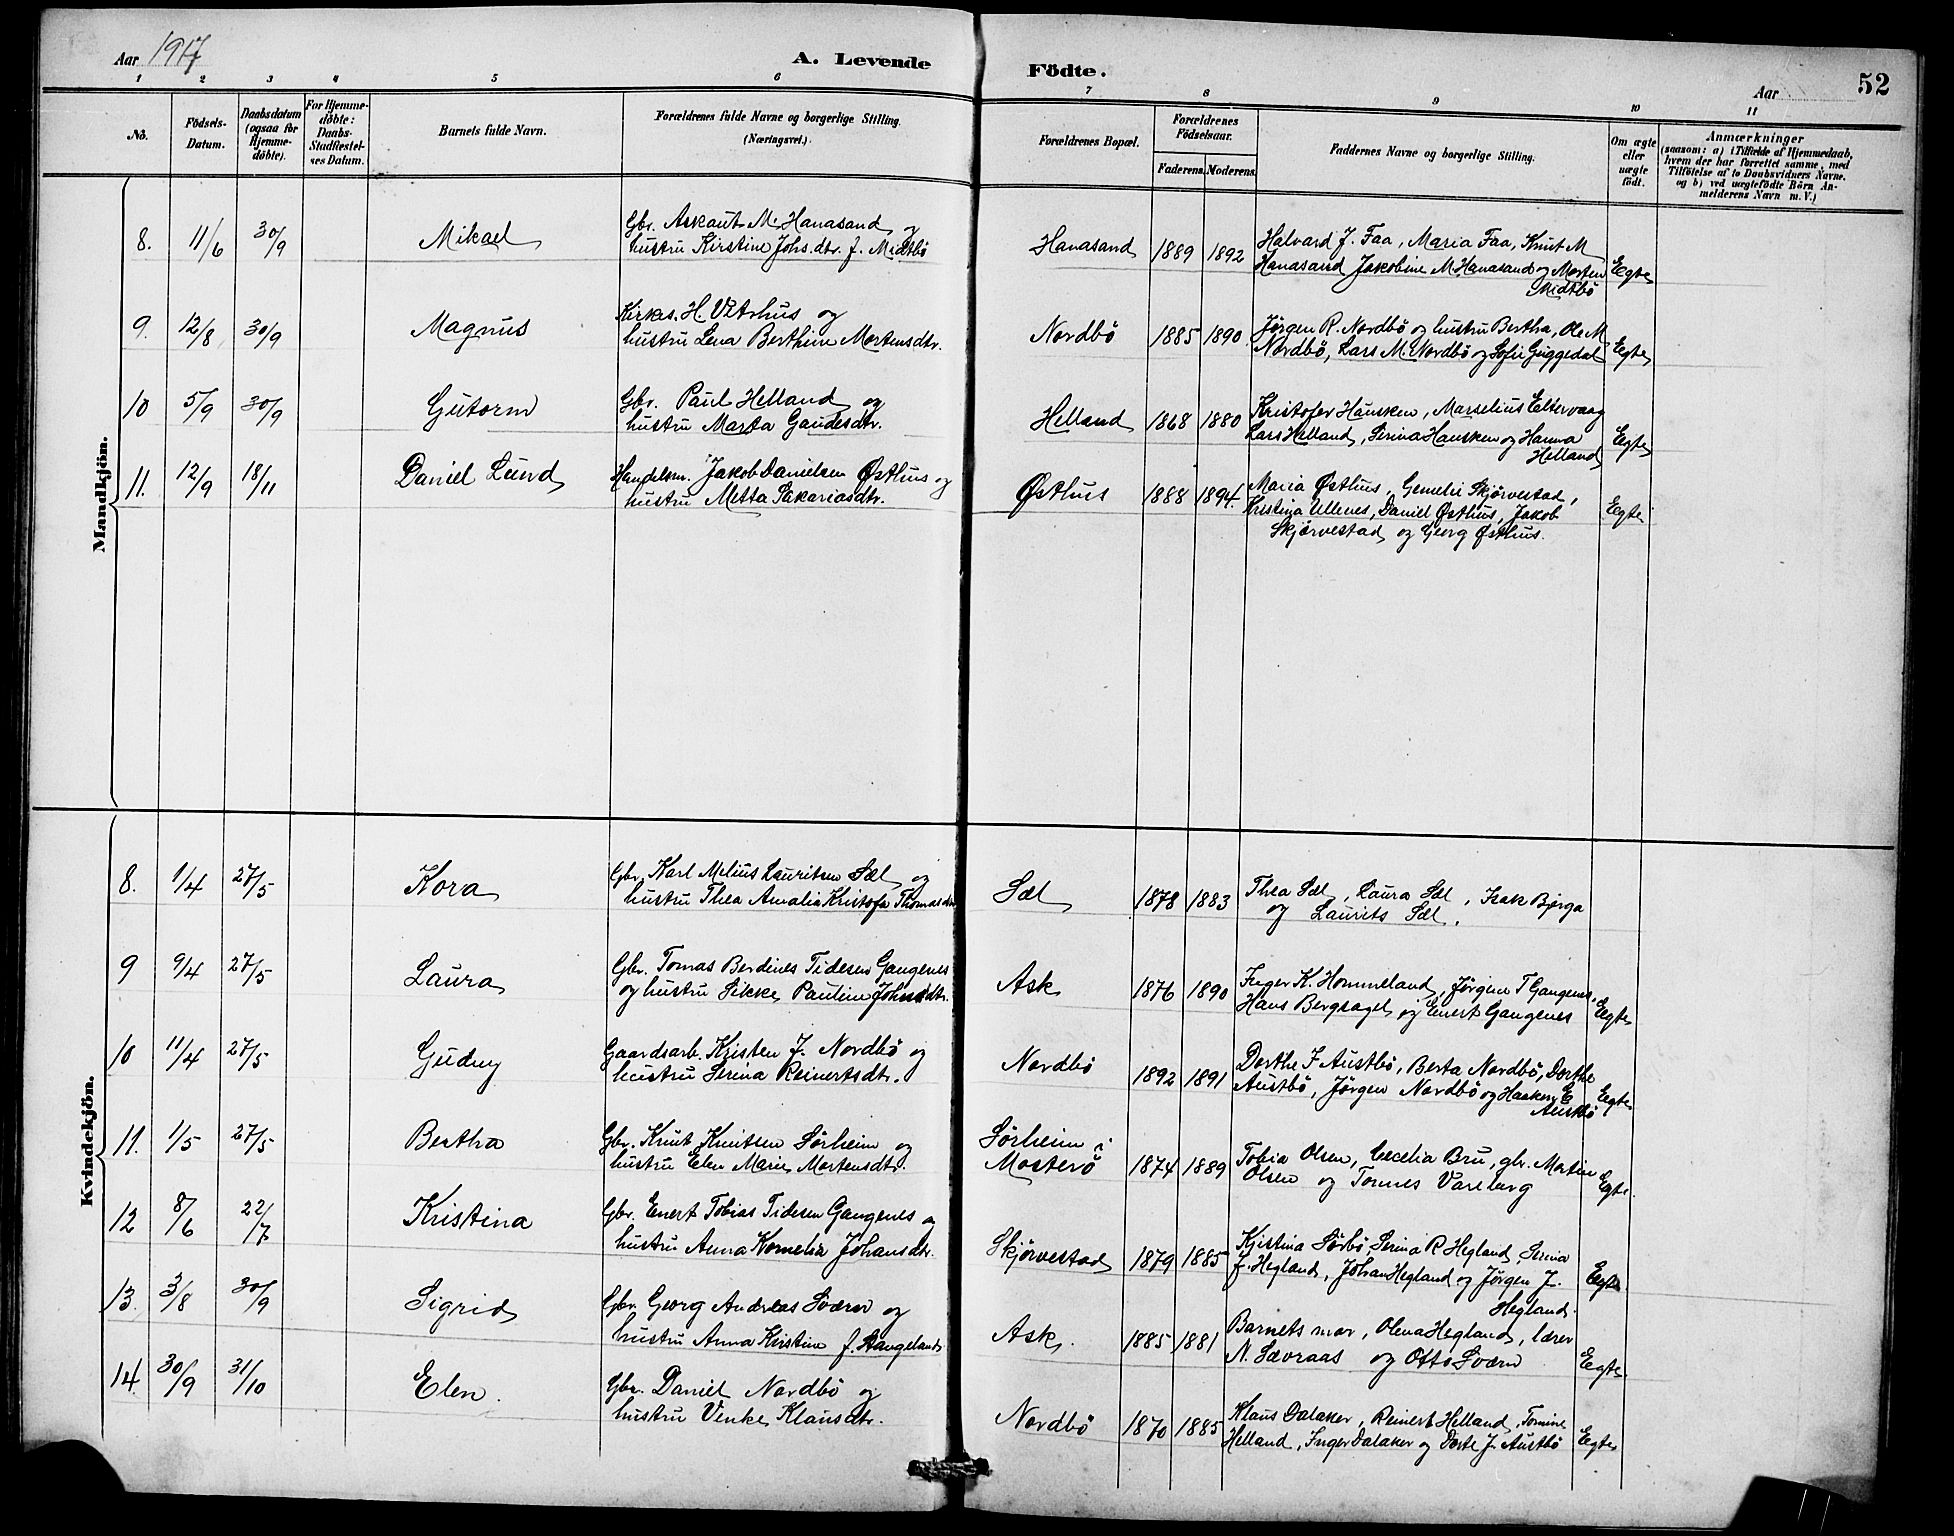 Aar 1917
A. Levende Födte.
Aar
52
1 2 3 4 5 6 7 8 9 10 11
No.
Födsels-Datum.
Daabsdatum (ogsaa for Hjemme-döbte).
For Hjemme-döbte: Daabs-Stadfestel-ses Datum.
Barnets fulde Navn.
Forældrenes fulde Navne og borgerlige Stilling. (Næringsvei.)
Forældrenes Bopæl.
Forældrenes Födselsaar.
Faderens. Moderens.
Faddernes Navne og borgerlige Stilling.
Om ægte eller uægte födt.
Anmærkninger
(saasom: a) i Tilfælde af Hjemmedaab,
hvem der har forrettet samme, med
Tilföielse af to Daabsvidners Navne.
og b) ved uægtefödte Börn An-
melderens Navn m. V.)
Mandkjön.
8. 11/6 30/9 Mikael
Gbr. Askaut M. Hanasand og
hustru Kirstine Johs.dtr. f. Midtbö
Hanasand 1889 1892
Halvard J. Faa, Maria Faa, Knut M
Hanasand Jakobine M. Hanasand og Morten
Midtbö
Egte
9. 12/8 30/9 Magnus
hustru Lena Berthine Mortensdtr.
Nordbö 1885 1890
Jörgen R. Nordbö og hustru Bertha, Ole M
Nordbö, Lars M. Nordbö og Sofie Guggedal
Egte
10 5/9 30/9 Gutorm
Gbr. Paul Helland og
hustru Marta Gaudesdtr.
Helland 1868 1880
Kristofer Hausken, Marselius Eltervaag
Lars Helland, Serina Hausken og Hanna
Helland
Egte
11. 12/9 18/11 Daniel Lund
Handelsm. Jakob Danielsen Østhus og
hustru Metta Sakariasdtr.
Østhus 1888 1894.
Maria Østhus, Skjörvestad,
Kristina Ullenes, Daniel Østhus, Jakob
Skjörvestad og Georg Østhus.
Egte
Kvindekjön.
8. 1/4 27/5 Kora
Gbr. Karl Melius Lauritsen Sæl og
hustru Thea Amalia Kristofa Thomasdtr
Sæl 1878 1883
Thea Sæl, Laura Sæl, Isak Bjerga
og Laurits Sæl.
9 9/4 27/5 Laura
Gbr. Tomas Berdines Tidesen Gangenes
og hustru Sikke Pauline Johnsdtr.
Ask 1876 1890
Inger K. Hommeland, Jörgen T Gangenes,
Hans Bergsagel og Enert Gangenes
Egte
10 11/4 27/5 Gudny
Gaardsarb. Kristen J. Nordbö og
hustru Serina Reinertsdtr.
Nordbö 1892 1891
Dorthe J Austbö, Berta Nordbö, Dorthe
Austbö, Jörgen Nordbö og Haaken E
Austbö
Egte
11. 1/5 27/5 Bertha
Gbr. Knut Knutsen Sörheim og
hustru Elen Marie Mortensdtr.
Sörheim i
Mosterö 1874 1889
Tobia Olsen, Cecelia Bru, gbr. Martin
Olsen og Tonnes Vareberg
Egte.
12 8/6 22/7 Kristina
Gbr. Enert Tobias Tidesen Gangenes og
hustru Anna Kornelia Johansdtr.
Skjörvestad 1879 1885
Kjistina Sörbö, Serina R Hegland, Serina
J. Hegland, Johan Hegland og Jörgen J.
Hegland.
Egte
13. 3/8 30/9 Sigrid
Gbr. Georg Andreas Sværn og
hustru Anna Kristine f. Stangeland
Ask. 1885 1881
Barnets mor, Olena Hegland, lærer
N. Sævraas og Otto Sværn
Egte
14. 30/9 31/10 Elen.
Gbr. Daniel Nordbö og
hustru Venke Klausdtr.
Nordbö 1870 1885
Klaus Dalaker, Reinert Helland, Tomine
Helland, Inger Dalaker og Dorte J. Austbö
Egte